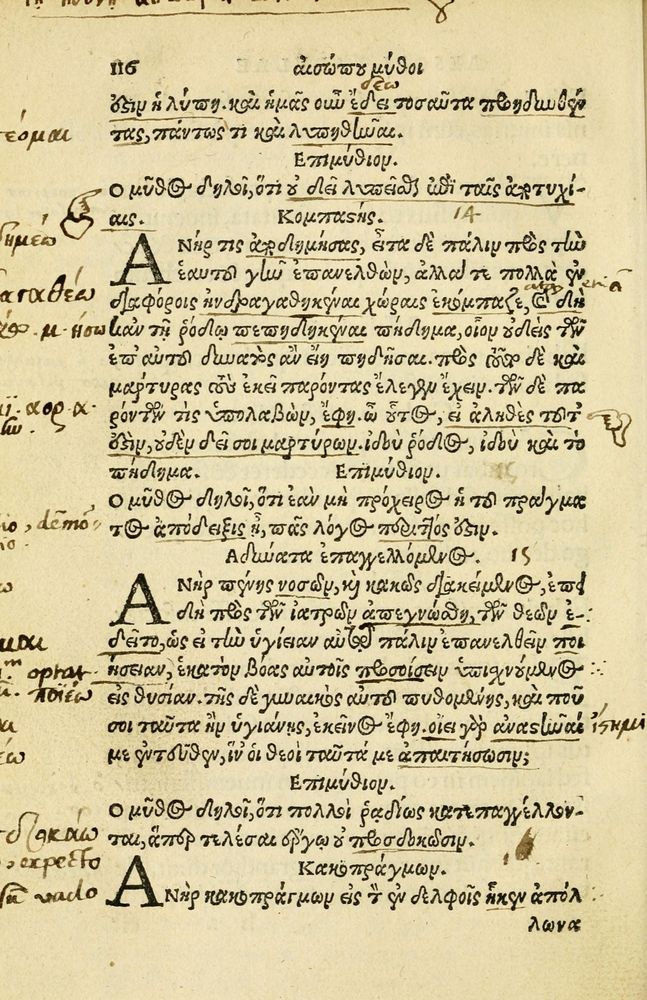 116 αἰσώπου μῦθοι
δέω
ἐστὶν ἡ λύπη. καὶ ἡμᾶς οὖν ἔδει τοσαῦτα προησθέν
τας, πάντως τι καὶ λυπηθῆναι.
Επιμύθιον.
Ο μῦθος δηλοῖ, ὅτι οὐ δεῖ λυπεῖσθαι ἐπὶ ταῖς ἀποτυχί-
αις. Κομπαστής. 14
ΑΝΗρ τις ἀποδημήσας, εἶτα δὲ πάλιν πρὸς τὴν
ἑαυτοῦ γῆν ἐπανελθὼν, ἄλλα τε πολλὰ ἐν
διαφόροις ἠνδραγαθηκέναι χώραις ἐκόμπαζε, καὶ δὴ
κἀν τῇ ῥόδῳ πεπηδηκέναι πήδημα, οἷον οὐδεὶς τῶν
ἐπ' αὐτοῦ δυνατὸς ἂν εἴη πηδῆσαι. πρὸς τοῦτο δὲ καὶ
μάρτυρας τοὺς ἐκεῖ παρόντας ἔλεγεν ἔχειν. τῶν δὲ πα
ρόντων τὶς ὑπολαβὼν, ἔφη. ὦ οὗτος, εἰ ἀληθὲς τοῦτ'
ἐστὶν, οὐδὲν δεῖ σοι μαρτύρων. ἰδοὺ ῥόδος, ἰδοὺ καὶ τὸ
πήδημα. Επιμύθιον.
Ο μῦθος δηλοῖ, ὅτι ἐὰν μὴ πρόχειρος ἡ τοῦ πράγμα
τος ἀπόδειξις ᾖ, πᾶς λόγος περιττός ἐστιν.
Αδύνατα ἐπαγγελλόμενος. 15
ΑΝΗρ πένης νοσῶν, καὶ κακῶς διακείμενος, ἐπει
δὴ πρὸς τῶν ἰατρῶν ἀπεγνώσθη, τῶν θεῶν ἐ-
δεῖτο, ὡς εἰ τὴν ὑγίειαν αὐτῷ πάλιν ἐπανελθεῖν ποι
ήσειαν, ἑκατὸν βόας αὐτοῖς προσοίσειν ὑπισχνούμενος
εἰς θυσίαν. τῆς δὲ γυναικὸς αὐτοῦ πυθομένης, καὶ ποῦ
σοι ταῦτα ἢν ὑγιάνῃς, ἐκεῖνος ἔφη. οἴει γὰρ ἀναστῆναί
με ἐντεῦθεν, ἵν' οἱ θεοὶ ταῦτά με ἀπαιτήσωσιν;
Επιμύθιον.
Ο μῦθος δηλοῖ, ὅτι πολλοὶ ῥᾳδίως κατεπαγγέλλον-
ται, ἅπερ τελέσαι ἔργῳ οὐ προσδοκῶσιν.
16
Κακοπράγμων.
ΑΝΗρ κακοπράγμων εἰς τὸν ἐν δελφοῖς ἧκεν ἀπόλ
λωνα
optat.
ποιέω
expecto
vado
ἵστημι